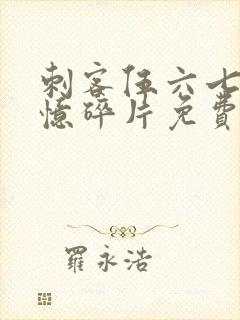 刺客伍六七
憶碎片免費
羅永浩